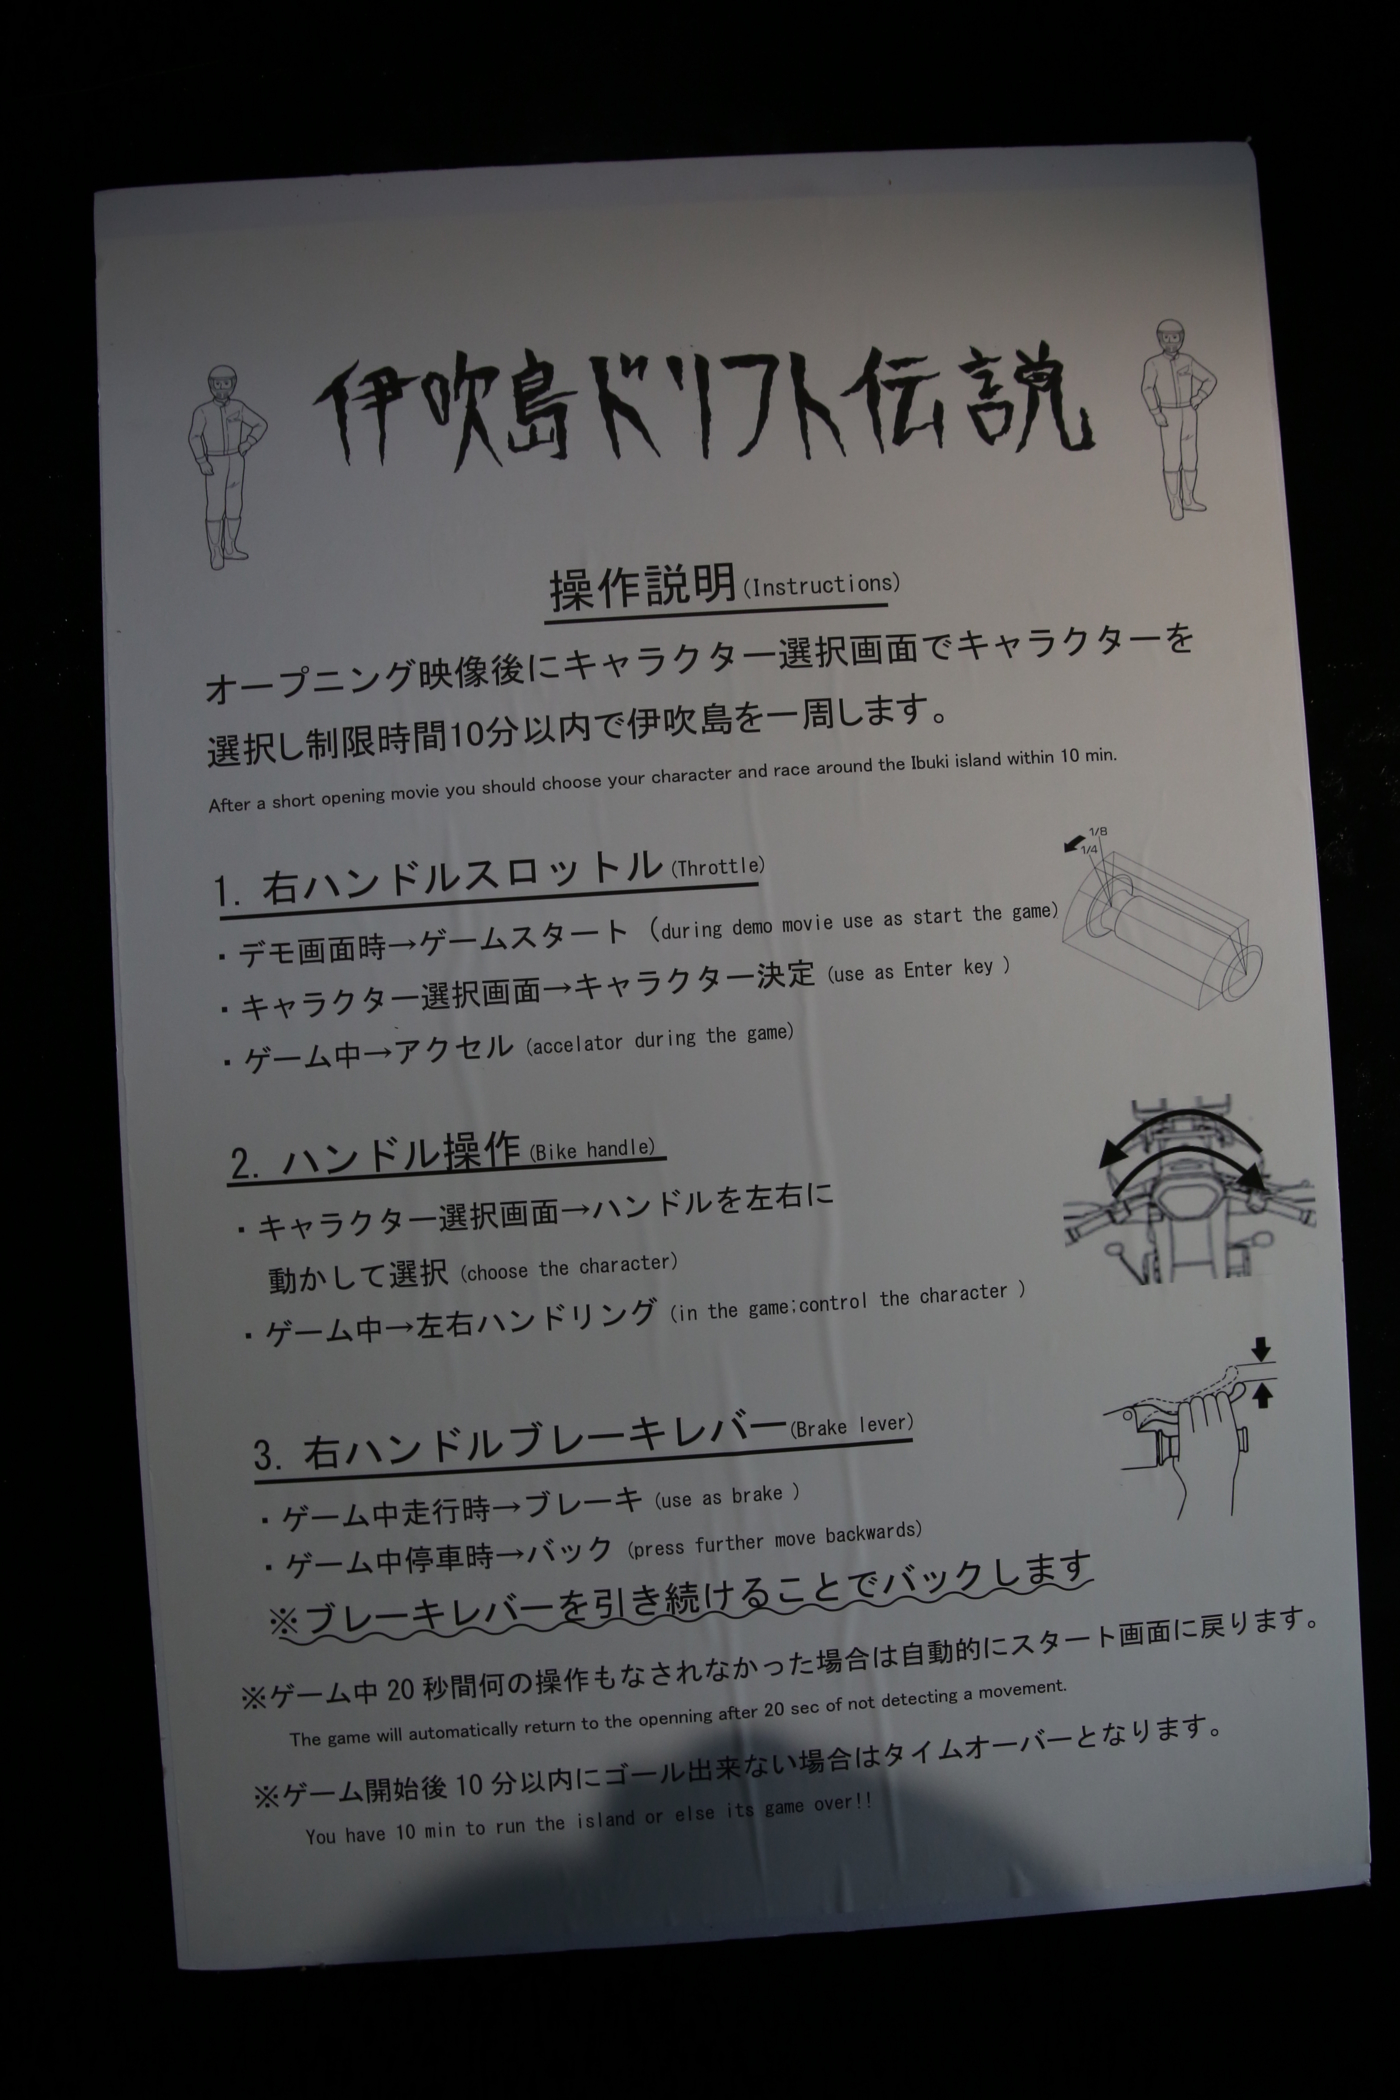 伊吹島ドリフト伝説
操作説明(Instructions)
オープニング映像後にキャラクター選択画面でキャラクターを
選択し制限時間10分以内で伊吹島を一周します。
After a short opening movie you should choose your character and race around the Ibuki island within 10 min.
1. 右ハンドルスロットル(Throttle)
・デモ画面時→ゲームスタート (during demo movie use as start the game)
・キャラクター選択画面→キャラクター決定 (use as Enter key )
・ゲーム中→アクセル (accelator during the game)
1/8
1/4
2. ハンドル操作(Bike handle)
・キャラクター選択画面→ハンドルを左右に
動かして選択 (choose the character)
・ゲーム中→左右ハンドリング (in the game;control the character )
3. 右ハンドルブレーキレバー(Brake lever)
・ゲーム中走行時→ブレーキ (use as brake )
・ゲーム中停車時→バック (press further move backwards)
※ブレーキレバーを引き続けることでバックします
※ゲーム中 20 秒間何の操作もなされなかった場合は自動的にスタート画面に戻ります。
The game will automatically return to the openning after 20 sec of not detecting a movement.
※ゲーム開始後 10 分以内にゴール出来ない場合はタイムオーバーとなります。
You have 10 min to run the island or else its game over!!